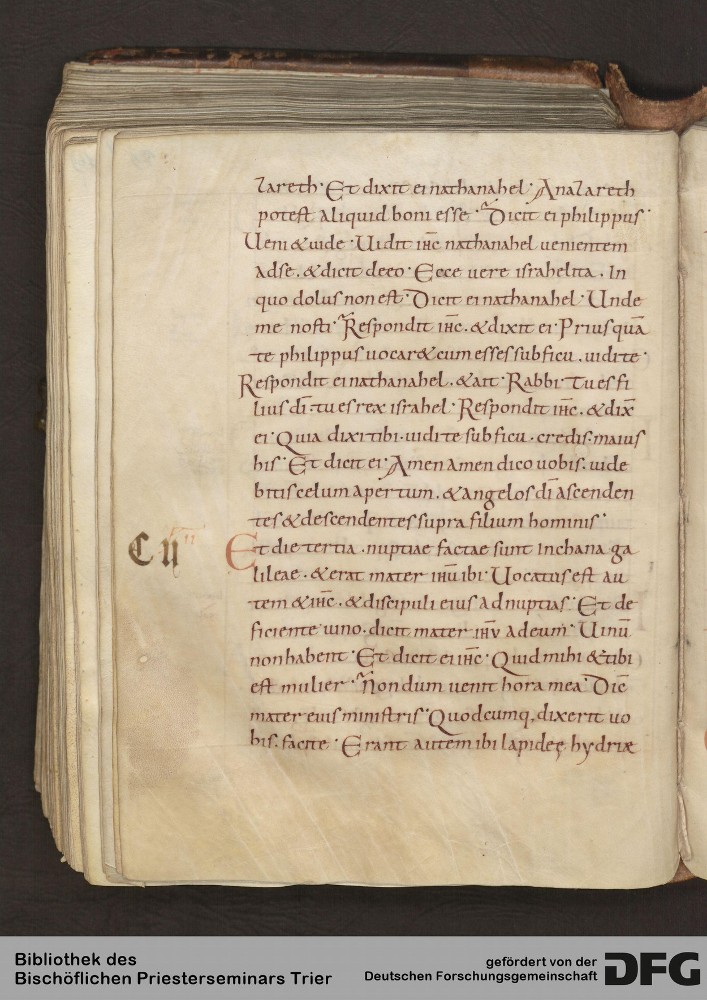 zareth· Et dixit ei nathanahel· Anazareth
potest aliquid boni esse· Dicit ei philippus·
Ueni & uide· Uidit ih̅c nathanahel uenientem
adse, & dicit deeo· Ecce uere israhelita. In
quo dolus non est· Dicit ei nathanahel· Unde
me nosti· Respondit ih̅c. & dixit ei· Priusqua̅
te philippus uocar& cum esses sub ficu. uidi te·
Respondit ei nathanahel. & ait· Rabbi· Tu es fi
lius di̅· tu es rex israhel· Respondit ih̅c. & dix̅
ei· Quia dixi tibi· uidi te sub ficu· credis· maius
his· Et dicit ei· Amen amen dico uobis· uide
bitis celum apertum. & angelos di̅ ascenden
tes & descendentes supra filium hominis·
Cu̅
Et die tertia· nuptiae factae sunt inchana ga
lileae· & erat mater ihu̅ ibi· Uocatus est au
tem & ih̅c· & discipuli eius ad nuptias· Et de
ficiente uino· dicit mater ihv̅ ad eum· Uinu̅
non habent· Et dicit ei ih̅c· Quid mihi & tibi
est mulier· Nondum uenit hora mea· Dic̅
mater eius ministris· Quodcumq, dixerit uo
bis. facite· Erant autem ibi lapideę hydriæ
Bibliothek des
Bischöflichen Priesterseminars Trier
gefördert von der
Deutschen Forschungsgemeinschaft
DFG